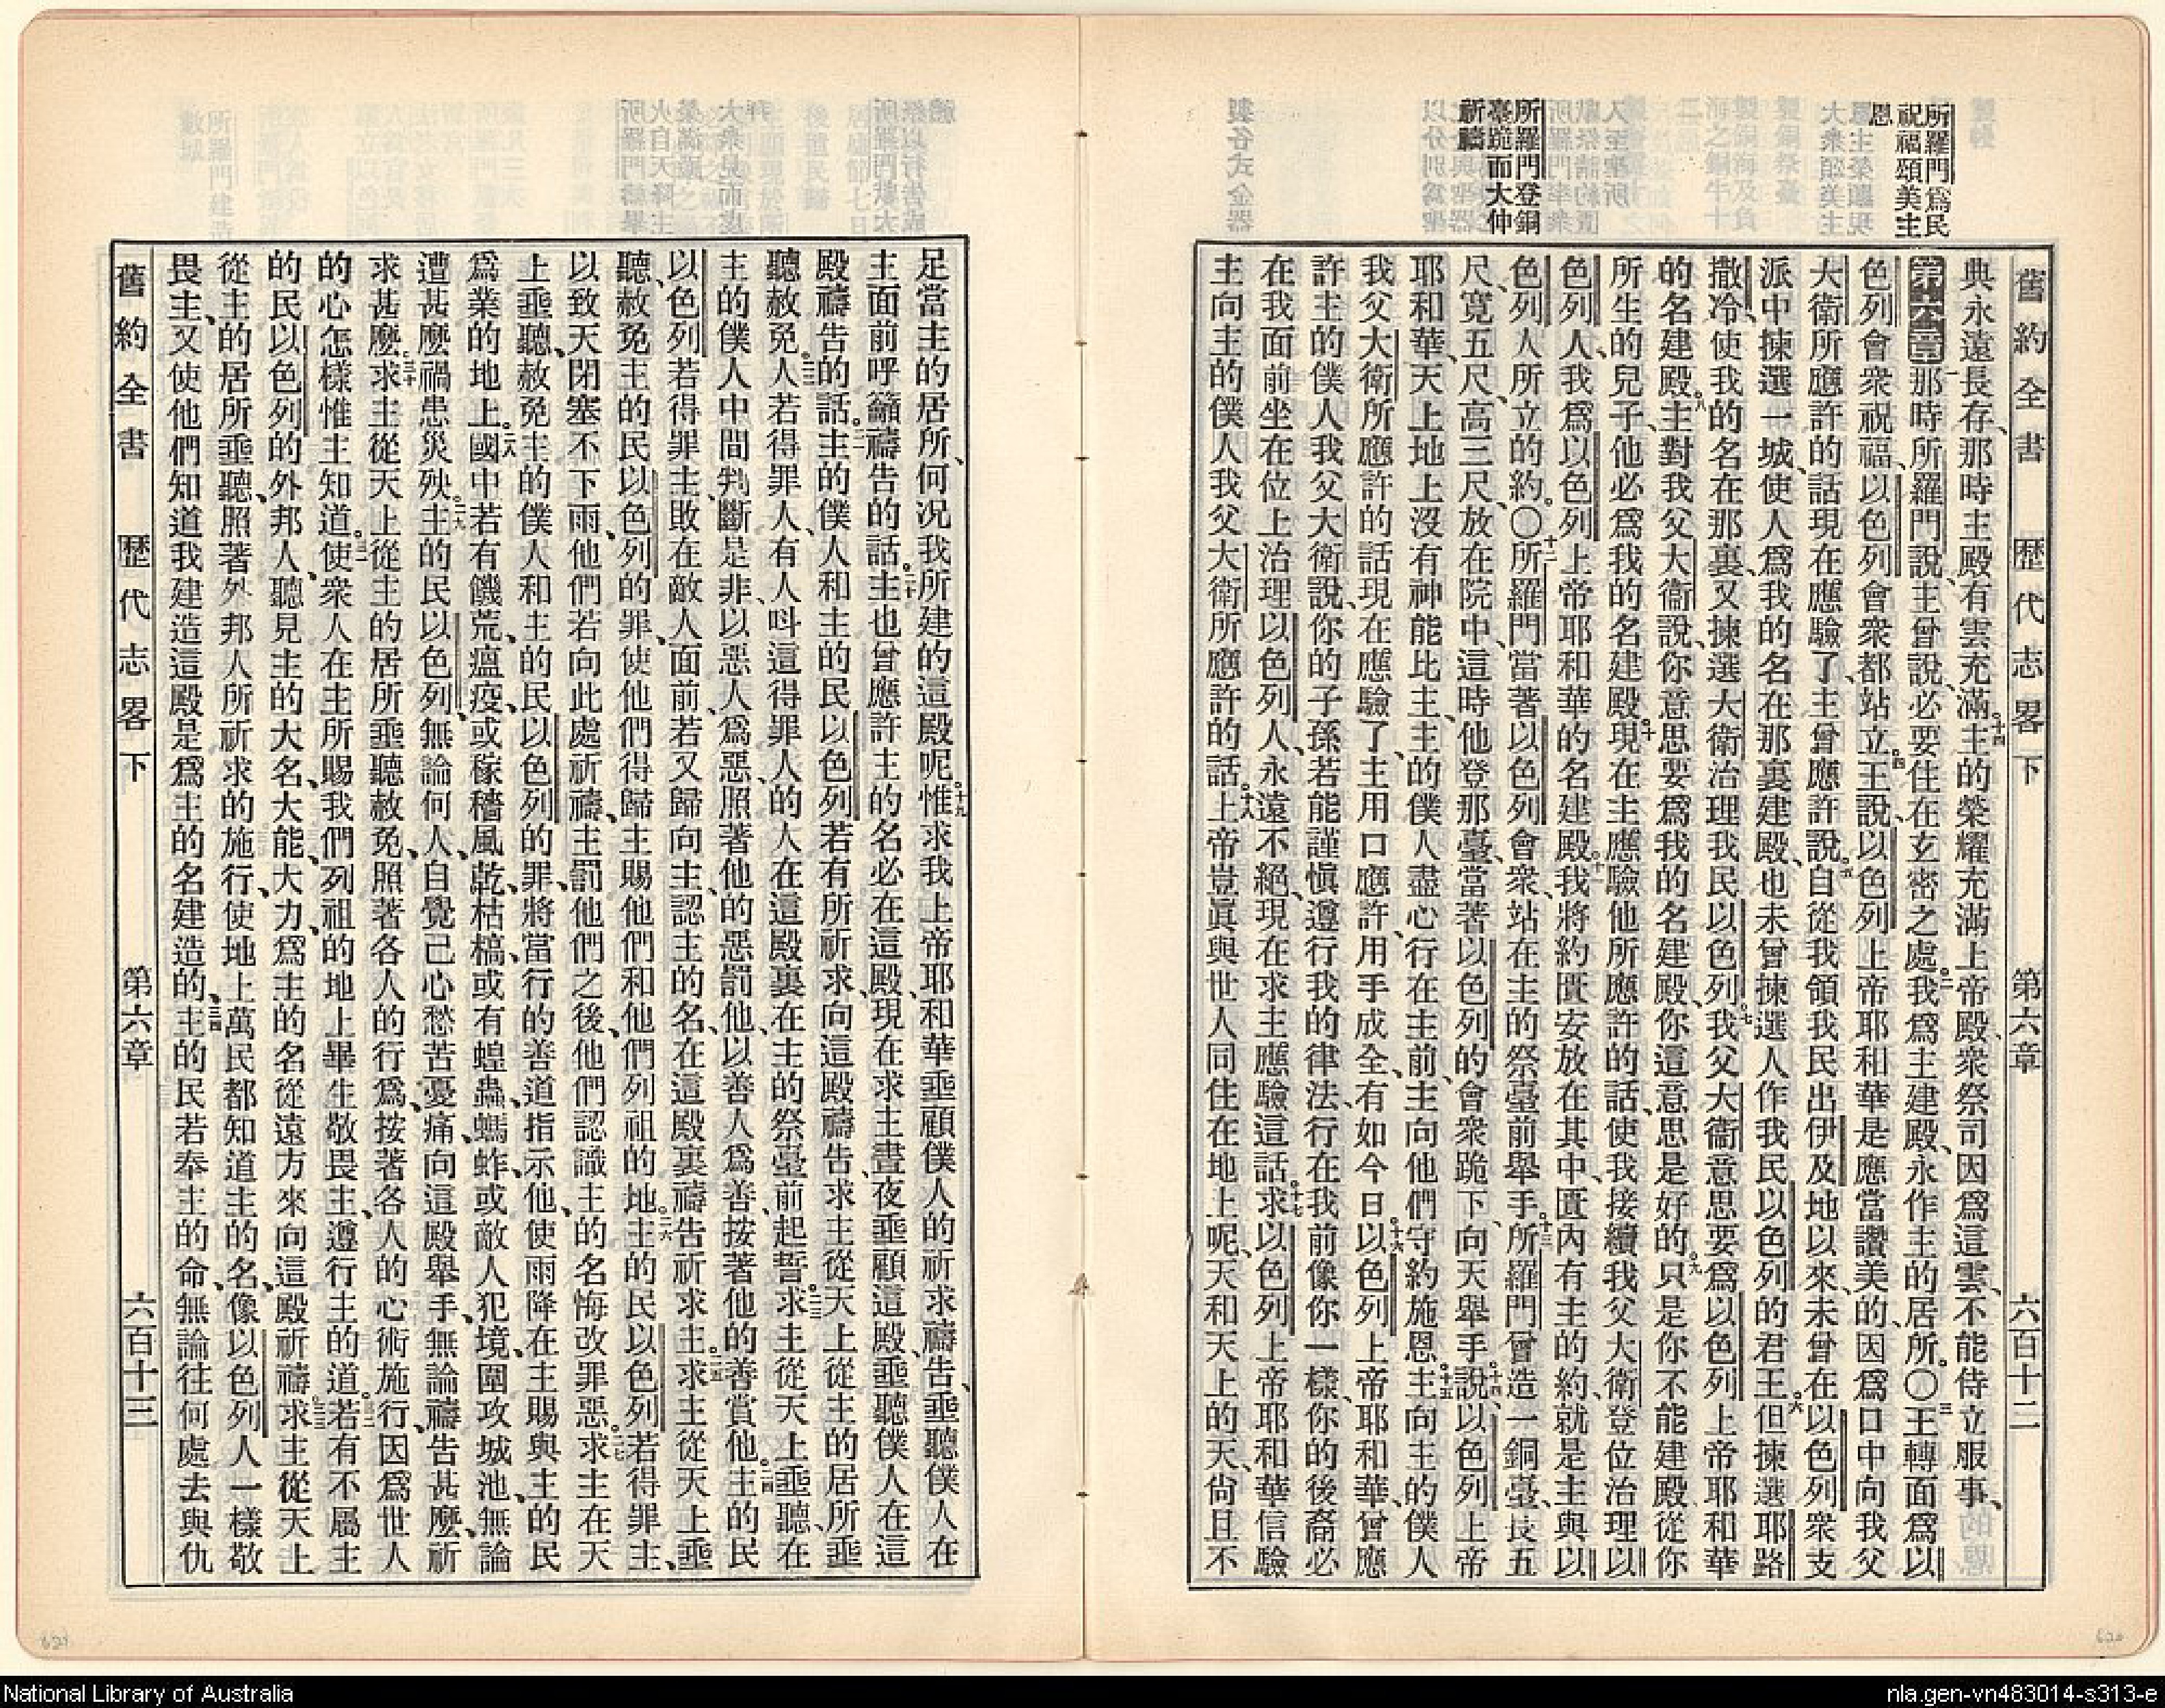 所羅門爲民
祝福頌美主
恩
所羅門登銅
臺跪而大伸
祈禱
舊約全書　歷代志畧下　第六章　六百十二
典永遠長存、那時主殿有雲充滿。十四主的榮耀充滿上帝殿、衆祭司因爲這雲、不能侍立服事、
第六章一那時所羅門說、主曾說、必要住在玄密之處。二我爲主建殿、永作主的居所。〇三王轉面爲以
色列會衆祝福、以色列會衆都站立。四王說、以色列上帝耶和華是應當讚美的、因爲口中向我父
大衛所應許的話現在應驗了、主曾應許說、五自從我領我民出伊及地以來、未曾在以色列衆支
派中揀選一城、使人爲我的名在那裏建殿、也未曾揀選人作我民以色列的君王。六但揀選耶路
撒冷使我的名在那裏、又揀選大衛治理我民以色列。七我父大衛意思要爲以色列上帝耶和華
的名建殿。八主對我父大衛說、你意思要爲我的名建殿、你這意思是好的。九只是你不能建殿從你
所生的兒子、他必爲我的名建殿。十現在主應驗他所應許的話、使我接續我父大衛登位治理以
色列人、我爲以色列上帝耶和華的名建殿。十一我將約匱安放在其中、匱內有主的約、就是主與以
色列人所立的約。〇十二所羅門當著以色列會衆、站在主的祭臺前舉手。十三所羅門曾造一銅臺、長五
尺、寬五尺、高三尺、放在院中、這時他登那臺、當著以色列的會衆跪下、向天舉手。十四說、以色列上帝
耶和華、天上地上沒有神能比主、主的僕人盡心行在主前、主向他們守約施恩。十五主向主的僕人
我父大衛所應許的話現在應驗了、主用口應許、用手成全、有如今日。十六以色列上帝耶和華、曾應
許主的僕人我父大衛說、你的子孫若能謹愼遵行我的律法、行在我前像你一樣、你的後裔必
在我面前坐在位上治理以色列人、永遠不絕、現在求主應驗這話。十七求以色列上帝耶和華信驗
主向主的僕人我父大衛所應許的話。十八上帝豈眞與世人同住在地上呢、天和天上的天、尙且不
足當主的居所、何况我所建的這殿呢。十九惟求我上帝耶和華垂顧僕人的祈求禱告、垂聽僕人在
主面前呼籲禱告的話。二十主也曾應許主的名必在這殿、現在求主晝夜垂顧這殿、垂聽僕人在這
殿禱告的話。二一主的僕人和主的民以色列若有所祈求、向這殿禱告、求主從天上從主的居所垂
聽赦免。二二人若得罪人、有人呌這得罪人的人在這殿裏、在主的祭臺前起誓。二三求主從天上垂聽、在
主的僕人中間判斷是非、以惡人爲惡、照著他的惡罰他、以善人爲善、按著他的善賞他。二四主的民
以色列若得罪主、敗在敵人面前、若又歸向主、認主的名、在這殿裏禱告祈求主。二五求主從天上垂
聽、赦免主的民以色列的罪、使他們得歸主賜他們和他們列祖的地。二六主的民以色列若得罪主、
以致天閉塞不下雨、他們若向此處祈禱、主罰他們之後、他們認識主的名、悔改罪惡。二七求主在天
上垂聽、赦免主的僕人和主的民以色列的罪、將當行的善道指示他、使雨降在主賜與主的民
爲業的地上。二八國中若有饑荒、瘟疫、或稼穡風乾、枯槁、或有蝗蟲、螞蚱、或敵人犯境、圍攻城池、無論
遭甚麼禍患災殃。二九主的民以色列、無論何人、自覺己心愁苦憂痛、向這殿舉手、無論禱告甚麼、祈
求甚麼。三十求主從天上從主的居所垂聽赦免、照著各人的行爲、按著各人的心術施行、因爲世人
的心怎樣、惟主知道。三一使衆人在主所賜我們列祖的地上畢生敬畏主、遵行主的道。三二若有不屬主
的民以色列的外邦人、聽見主的大名、大能、大力、爲主的名從遠方來、向這殿祈禱。三三求主從天上
從主的居所垂聽、照著外邦人所祈求的施行、使地上萬民都知道主的名、像以色列人一樣敬
畏主、又使他們知道我建造這殿是爲主的名建造的。三四主的民若奉主的命、無論往何處去與仇
舊約全書　歷代志畧下　第六章　六百十三
621
620
National Library of Australia
nla.gen-vn483014-s313-e